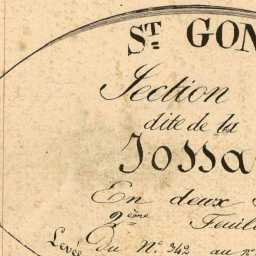 ST GON
Section
dite de la
Jossa
En deux
2ème Feuil
Levée Du N° 342 au n°